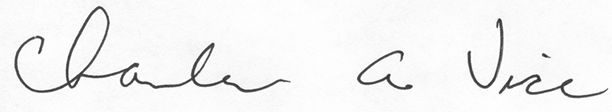 Charles A. Vice